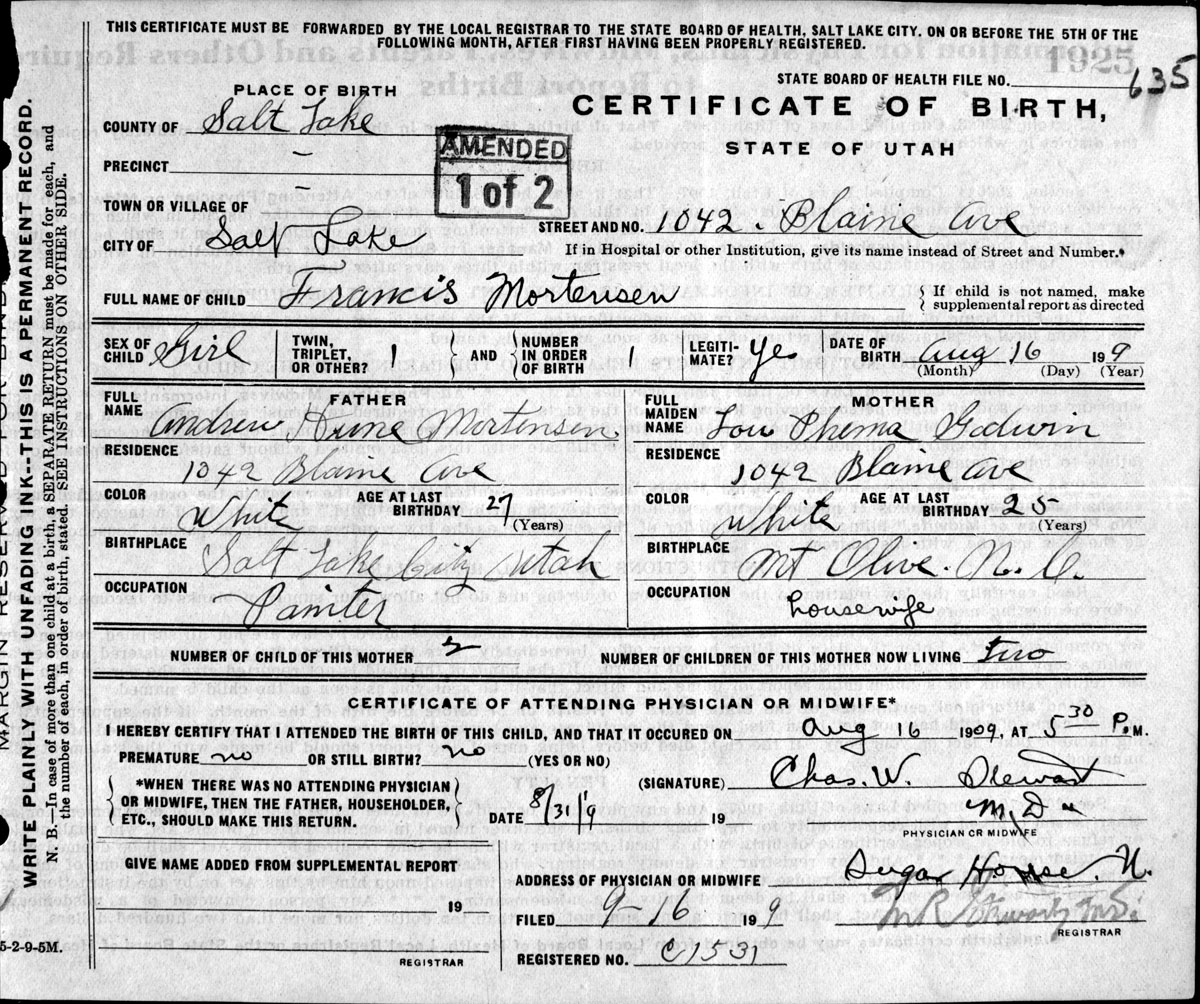 THIS CERTIFICATE MUST BE FORWARDED BY THE LOCAL REGISTRAR TO THE STATE BOARD OF HEALTH, SALT LAKE CITY, ON OR BEFORE THE 5TH OF THE
FOLLOWING MONTH, AFTER FIRST HAVING BEEN PROPERLY REGISTERED.
1925
STATE BOARD OF HEALTH FILE NO. 635
PLACE OF BIRTH
CERTIFICATE OF BIRTH,
STATE OF UTAH
COUNTY OF Salt Lake
PRECINCT –
AMENDED
1 of 2
TOWN OR VILLAGE OF –
STREET AND NO. 1042. Blaine Ave
CITY OF Salt Lake
If in Hospital or other Institution, give its name instead of Street and Number.*
FULL NAME OF CHILD Francis Mortensen
{ If child is not named, make
supplemental report as directed
SEX OF CHILD Girl
TWIN, TRIPLET, OR OTHER? 1 } AND { NUMBER IN ORDER OF BIRTH 1
LEGITI-MATE? Yes
DATE OF BIRTH Aug 16 1909
(Month) (Day) (Year)
FATHER
FULL NAME Andrew Hune Mortensen
RESIDENCE
1042 Blaine Ave
COLOR White
AGE AT LAST BIRTHDAY 27 (Years)
BIRTHPLACE
Salt Lake City Utah
OCCUPATION
Painter
MOTHER
FULL MAIDEN NAME Lou Phema Godwin
RESIDENCE
1042 Blaine Ave
COLOR White
AGE AT LAST BIRTHDAY 25 (Years)
BIRTHPLACE
Mt Olive. N. C.
OCCUPATION
housewife
NUMBER OF CHILD OF THIS MOTHER 2
NUMBER OF CHILDREN OF THIS MOTHER NOW LIVING two
CERTIFICATE OF ATTENDING PHYSICIAN OR MIDWIFE*
I HEREBY CERTIFY THAT I ATTENDED THE BIRTH OF THIS CHILD, AND THAT IT OCCURED ON Aug 16 1909, AT 5 30 P.M.
PREMATURE no OR STILL BIRTH? no (YES OR NO)
{ *WHEN THERE WAS NO ATTENDING PHYSICIAN
OR MIDWIFE, THEN THE FATHER, HOUSEHOLDER,
ETC., SHOULD MAKE THIS RETURN. }
(SIGNATURE) Chas. W. Stewart
M.D.
DATE 8/31/9 19
PHYSICIAN OR MIDWIFE
GIVE NAME ADDED FROM SUPPLEMENTAL REPORT
19
REGISTRAR
ADDRESS OF PHYSICIAN OR MIDWIFE Sugar House. U.
FILED 9-16 199
REGISTRAR
REGISTERED NO. C1531
5-2-9-5M.
MARGIN RESERVED FOR
WRITE PLAINLY WITH UNFADING INK--THIS IS A PERMANENT RECORD.
N. B.—In case of more than one child at a birth, a SEPARATE RETURN must be made for each, and
the number of each, in order of birth, stated. SEE INSTRUCTIONS ON OTHER SIDE.